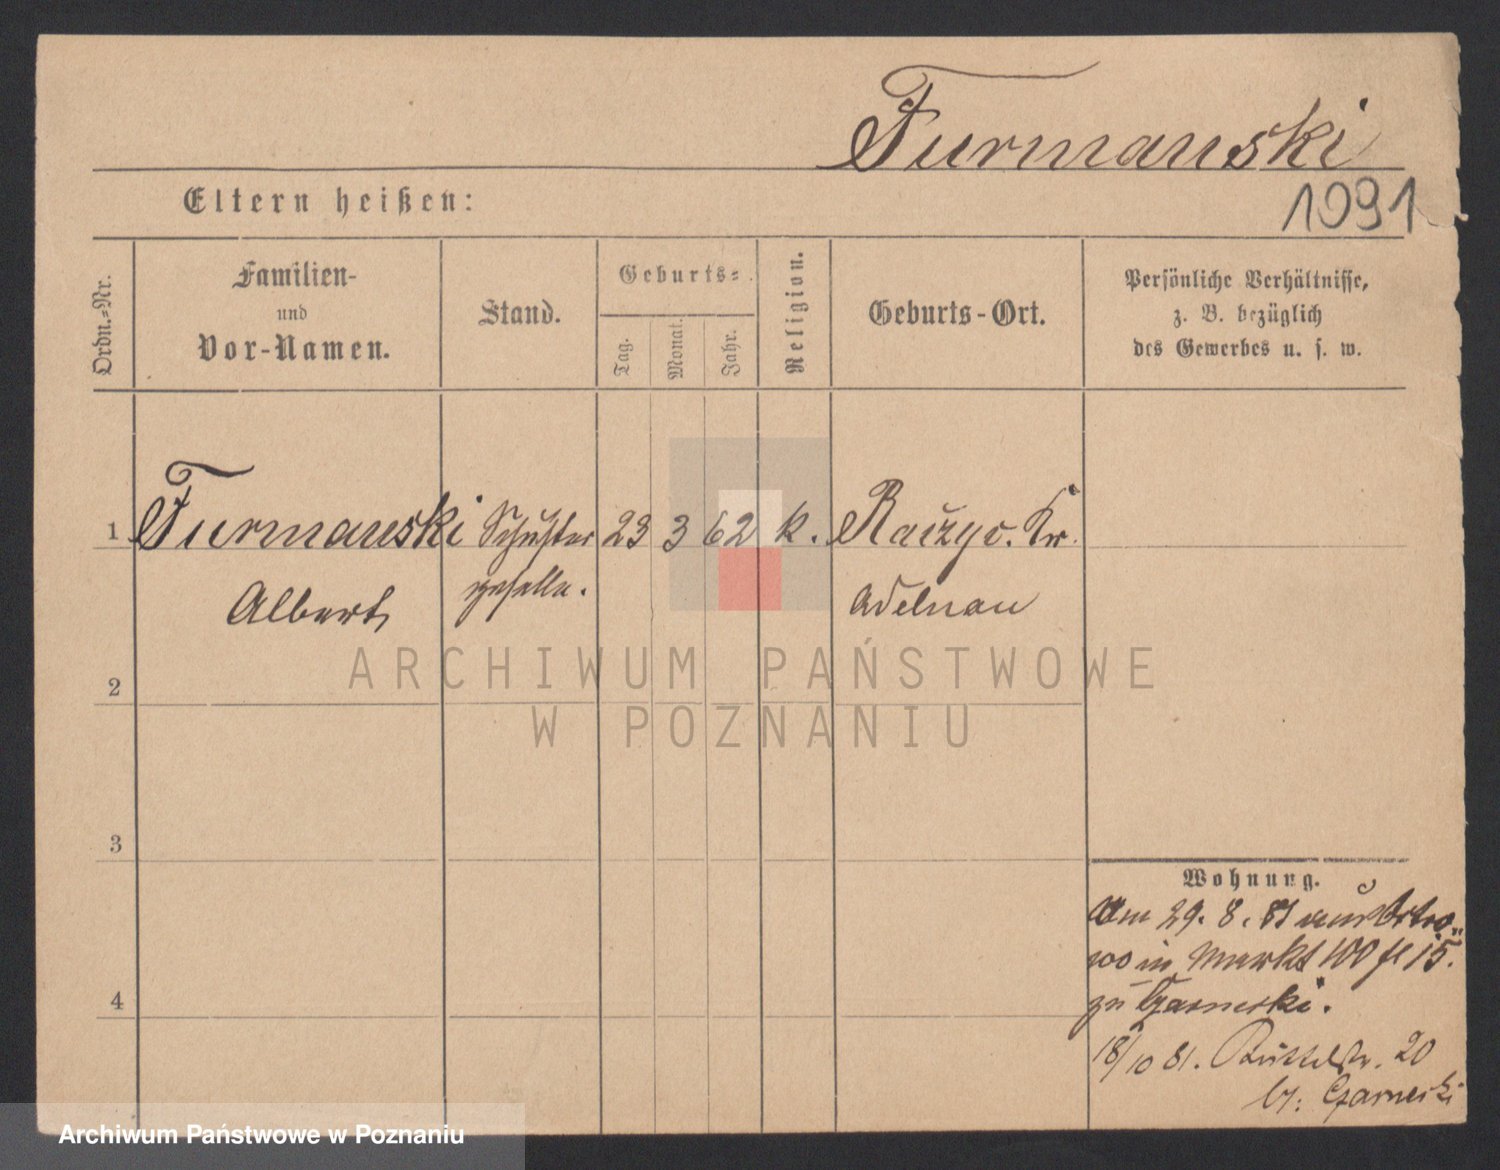 Furmanski
1091
Eltern heißen:
Ordn.=Nr.
Familien-
und
Vor-Namen.
Stand.
Geburts=
Tag.
Monat.
Jahr.
Religion.
Geburts-Ort.
Persönliche Verhältnisse,
z. B. bezüglich
des Gewerbes u. s. w.
1 Furmanski Schuster 23 3 62 k. Kr.
Albert geselle. Adelnau
ARCHIWUM PAŃSTWOWE
W POZNANIU
2
3
4
Wohnung.
Am 29. 8. 81 aus Ostro„
wo in Markt 100
zu
18/10 81. Büttelstr. 20
b/: Czarneski
Archiwum Państwowe w Poznaniu